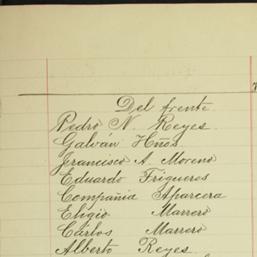 Del frente
Pedro N. Reyes.
Galván Hños.
Francisco A. Moreno
Eduardo Frigueros
Compañia Aparcera
Eligio Marrero
Carlos Marrero
Alberto Reyes.